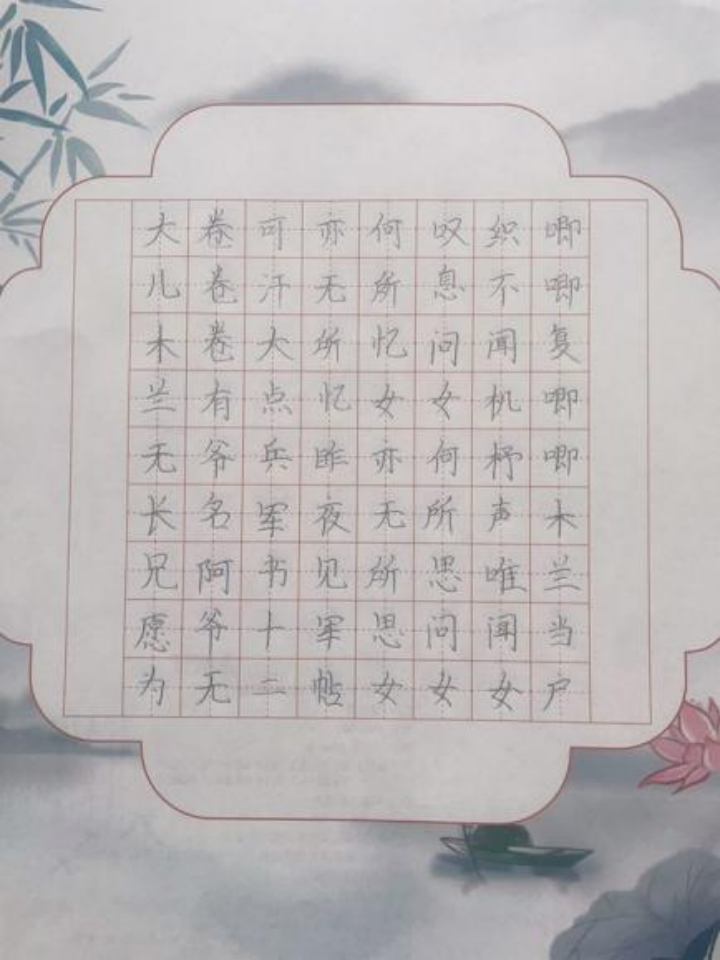 唧唧复唧唧木兰当户
织不闻机杼声唯闻女
叹息问女何所思问女
何所忆女亦无所思女
亦无所忆昨夜见军帖
可汗大点兵军书十二
卷卷卷有爷名阿爷无
大儿木兰无长兄愿为